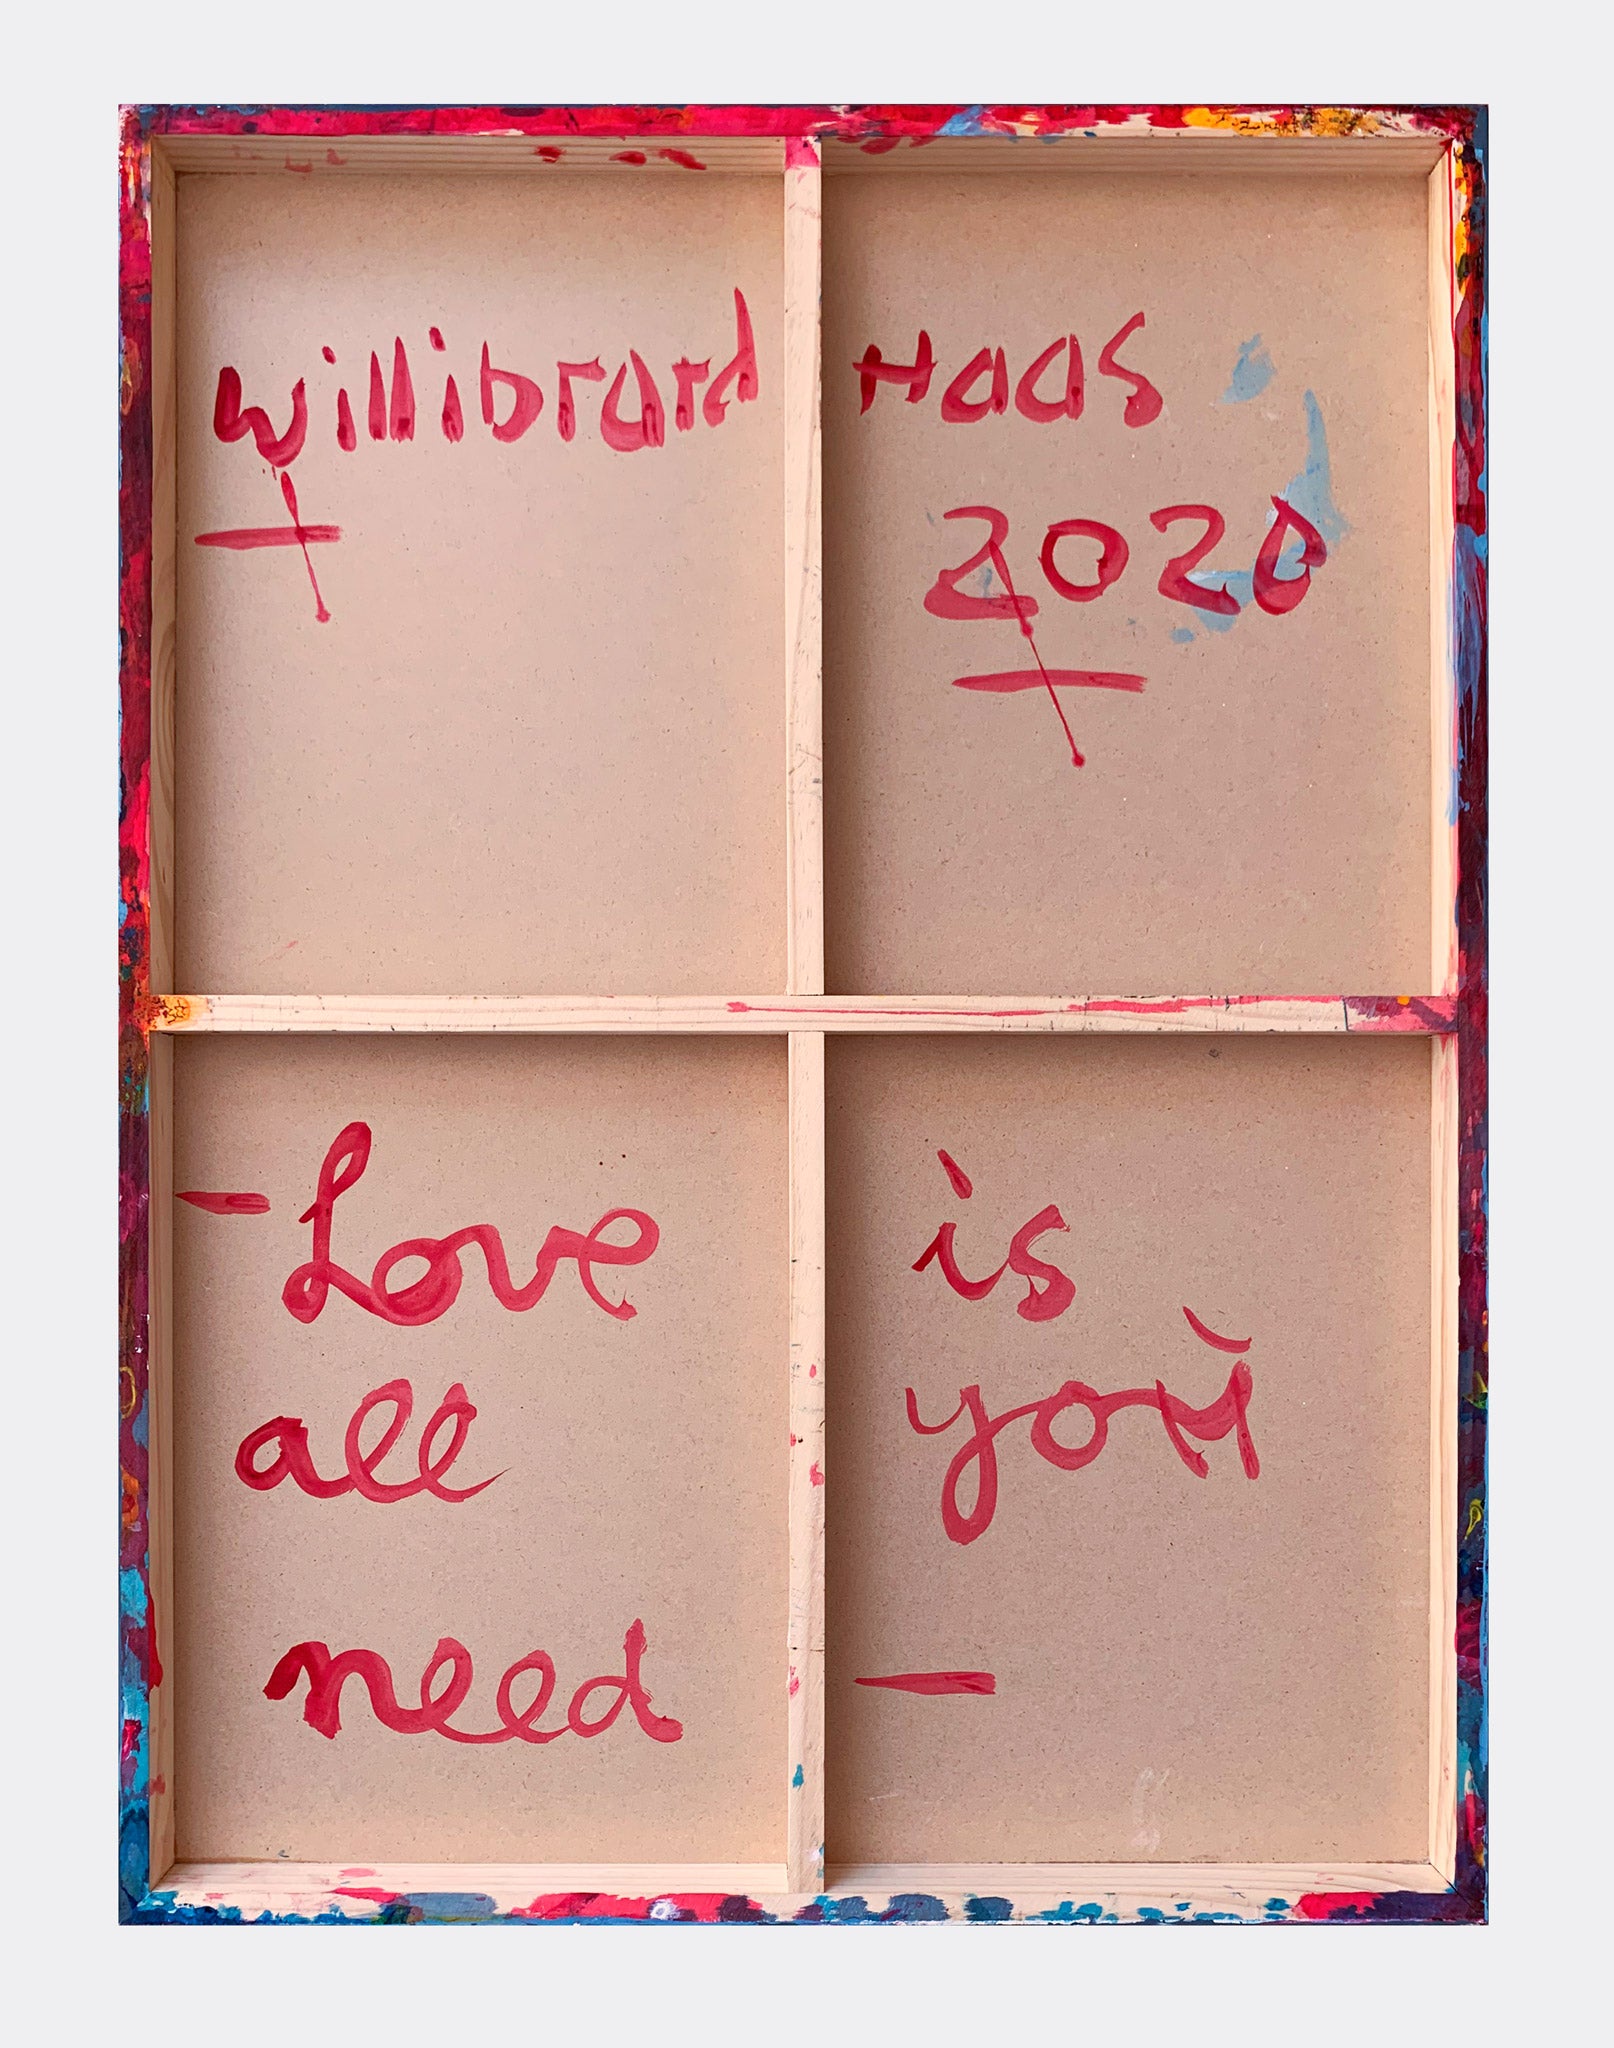 Willibrord Haas
2020
- Love is
all you
need -